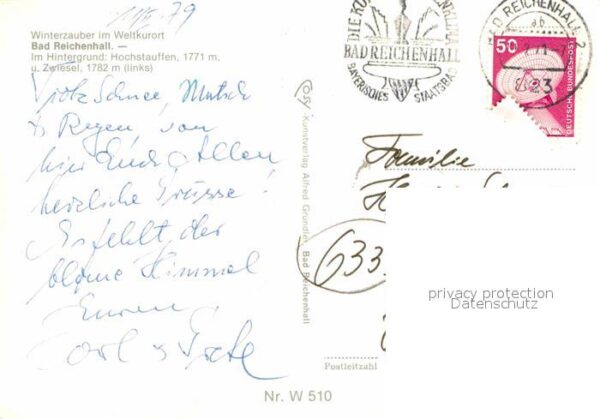 11/2.79
Winterzauber im Weltkurort
Bad Reichenhall. —
Im Hintergrund: Hochstauffen, 1771 m,
u. Zwiesel, 1782 m (links)
Trotz Schnee, Matsch
& Regen, von
hier Euch Allen
herzliche Grüsse!
Es fehlt der
blaue Himmel
Euren
Karl & Grete
Cosy-Kunstverlag Alfred Gründler, Bad Reichenhall
BAD REICHENHALL
BAYERISCHES STAATSBAD
BAD REICHENHALL 2
ab
823
50
DEUTSCHE BUNDESPOST
Familie
633
privacy protection
Datenschutz
Postleitzahl
Nr. W 510